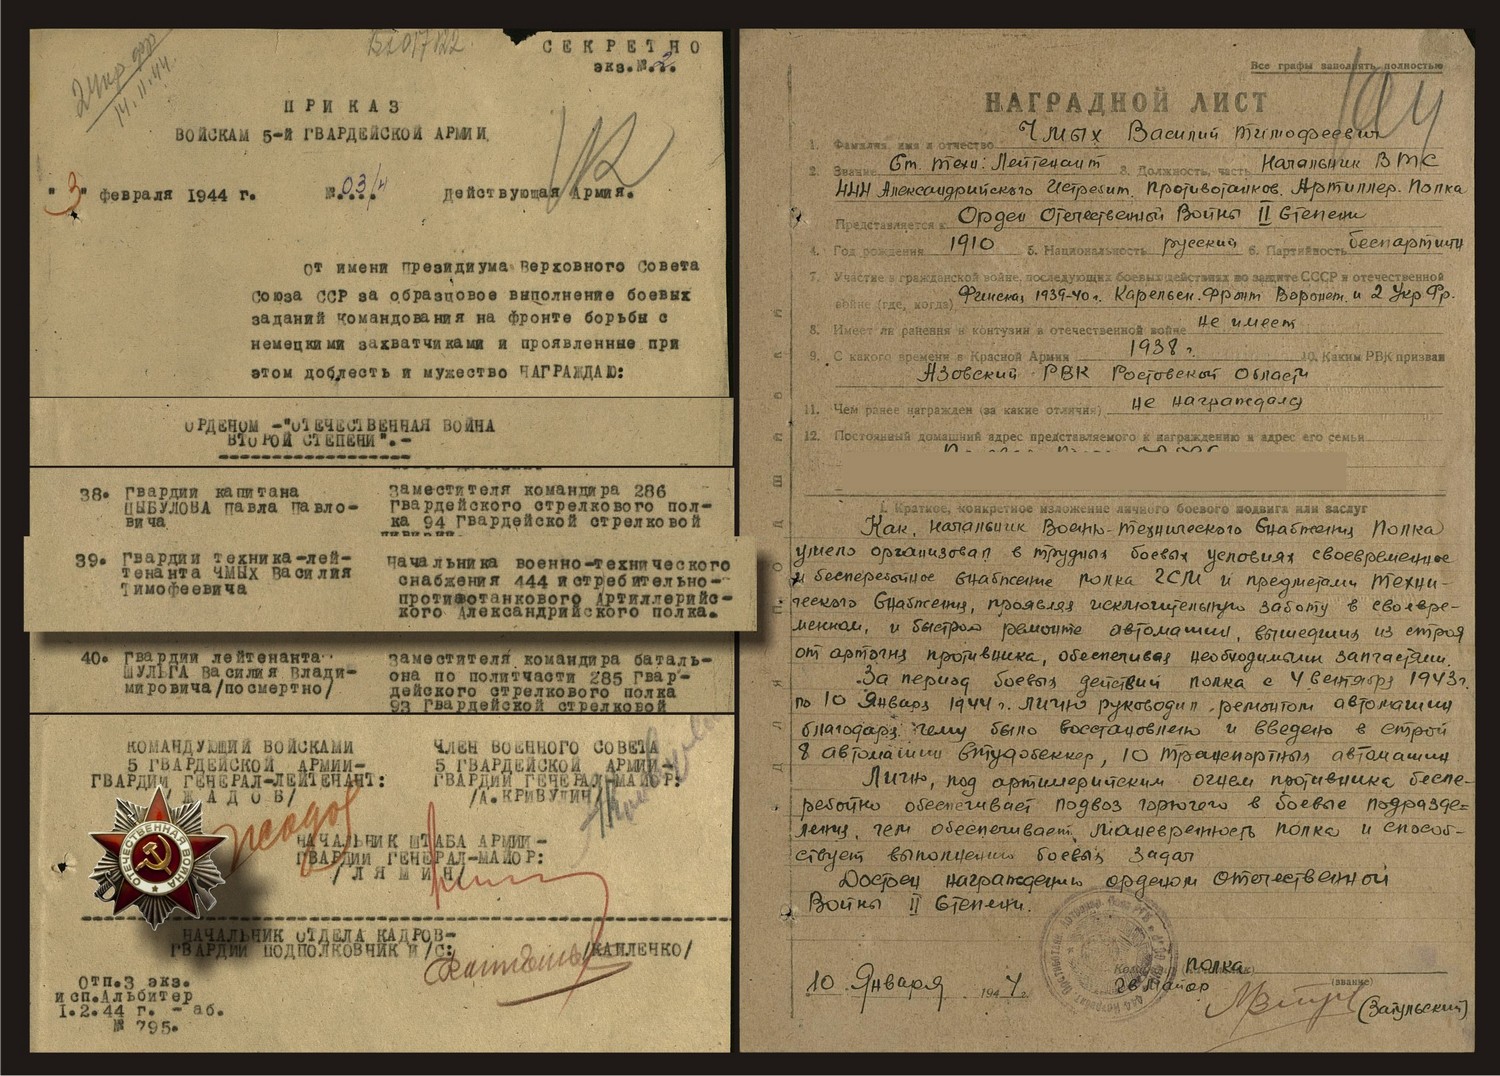 2 Укр фр
14.II.44
СЕКРЕТНО
экз.№.2.
ПРИКАЗ
ВОЙСКАМ 5-Й ГВАРДЕЙСКОЙ АРМИИ
"3" февраля 1944 г. №.03/н Действующая Армия.
От имени Президиума Верховного Совета
Союза ССР за образцовое выполнение боевых
заданий командования на фронте борьбы с
немецкими захватчиками и проявленные при
этом доблесть и мужество НАГРАЖДАЮ:
ОРДЕНОМ -"ОТЕЧЕСТВЕННАЯ ВОЙНА
ВТОРОЙ СТЕПЕНИ".-
38. Гвардии капитана
ЦЫБУЛОВА Павла Павло-
вича
Заместителя командира 286
Гвардейского стрелкового пол-
ка 94 Гвардейской стрелковой
дивизии.
39. Гвардии техника-лей-
тенанта ЧМЫХ Василия
Тимофеевича
Начальника военно-технического
снабжения 444 истребительно-
противотанкового Артиллерийс-
кого Александрийского полка.
40. Гвардии лейтенанта
ШУЛЬГА Василия Влади-
мировича/посмертно/
Заместителя командира баталь-
она по политчасти 285 Гвар-
дейского стрелкового полка
93 Гвардейской стрелковой
КОМАНДУЮЩИЙ ВОЙСКАМИ
5 ГВАРДЕЙСКОЙ АРМИИ-
ГВАРДИИ ГЕНЕРАЛ-ЛЕЙТЕНАНТ:
/ЖАДОВ/
ЧЛЕН ВОЕННОГО СОВЕТА
5 ГВАРДЕЙСКОЙ АРМИИ-
ГВАРДИИ ГЕНЕРАЛ-МАЙОР:
/А.КРИВУЛИН/
Жадов
НАЧАЛЬНИК ШТАБА АРМИИ-
ГВАРДИИ ГЕНЕРАЛ-МАЙОР:
/ЛЯМИН/
ОТЕЧЕСТВЕННАЯ ВОЙНА
НАЧАЛЬНИК ОТДЕЛА КАДРОВ-
ГВАРДИИ ПОДПОЛКОВНИК И/С: /КАПЛЕНКО/
ОТП.3 экз.
исп.Альбитер
1.2.44 г. - аб.
№ 795.
Все графы заполнять полностью
НАГРАДНОЙ ЛИСТ
1. Фамилия, имя и отчество Чмых Василий Тимофеевич
2. Звание Ст. техн: Лейтенант 3. Должность, часть Начальник ВТС
444 Александрийского Истребит. Противотанков. Артиллер. Полка
Представляется к Орден Отечественной Войны II Степени
4. Год рождения 1910 5. Национальность русский 6. Партийность беспартийн
7. Участие в гражданской войне, последующих боевых действиях по защите СССР и отечественной
войне (где, когда) Финская 1939-40 г. Карельск. Фронт Воронеж. и 2 Укр Фр.
8. Имеет ли ранения и контузии в отечественной войне не имеет
9. С какого времени в Красной Армии 1938 г. 10. Каким РВК призван
Азовский РВК Ростовской Области
11. Чем ранее награжден (за какие отличия) не награждался
12. Постоянный домашний адрес представляемого к награждению и адрес его семьи
I. Краткое, конкретное изложение личного боевого подвига или заслуг
Как, начальник Военно-технического Снабжения Полка
умело организовал в трудных боевых условиях своевременное
и бесперебойное снабжение полка ГСМ и предметами техни-
ческого Снабжения, проявляя исключительную заботу в своевре-
менном, и быстром ремонте автомашин, вышедших из строя
от артогня противника, обеспечивая необходимыми запчастями.
За период боевых действий полка с 4 Сентября 1943г.
по 10 Января 1944 г. лично руководил ремонтом автомашин
благодаря чему было восстановлено и введено в строй
8 автомашин Студобеккер, 10 транспортных автомашин
Лично, под артиллерийским огнем противника беспе-
ребойно обеспечивает подвоз горючего в боевые подразде-
ления, чем обеспечивает маневренность полка и способ-
ствует выполнению боевых задач
Достоен награждению орденом Отечественной
Войны II Степени.
10 Января 1944 г.
Полка
Гв Майор
(звание)
(Затульский)